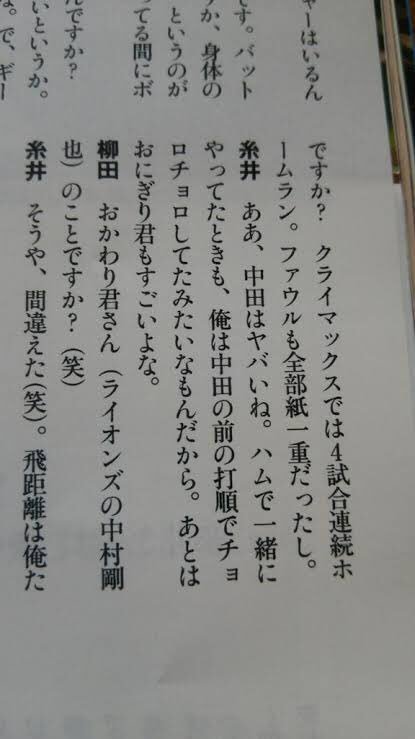 ャーはいるん
です。バット
すか、身体の
というのが
ってる間にボ
んですか？
いというか。
な。で、ギー
ですか？　クライマックスでは4試合連続ホ
ームラン。ファウルも全部紙一重だったし。
糸井　ああ、中田はヤバいね。ハムで一緒に
やってたときも、俺は中田の前の打順でチョ
ロチョロしてたみたいなもんだから。あとは
おにぎり君もすごいよな。
柳田　おかわり君さん（ライオンズの中村剛
也）のことですか？（笑）
糸井　そうや、間違えた（笑）。飛距離は俺た